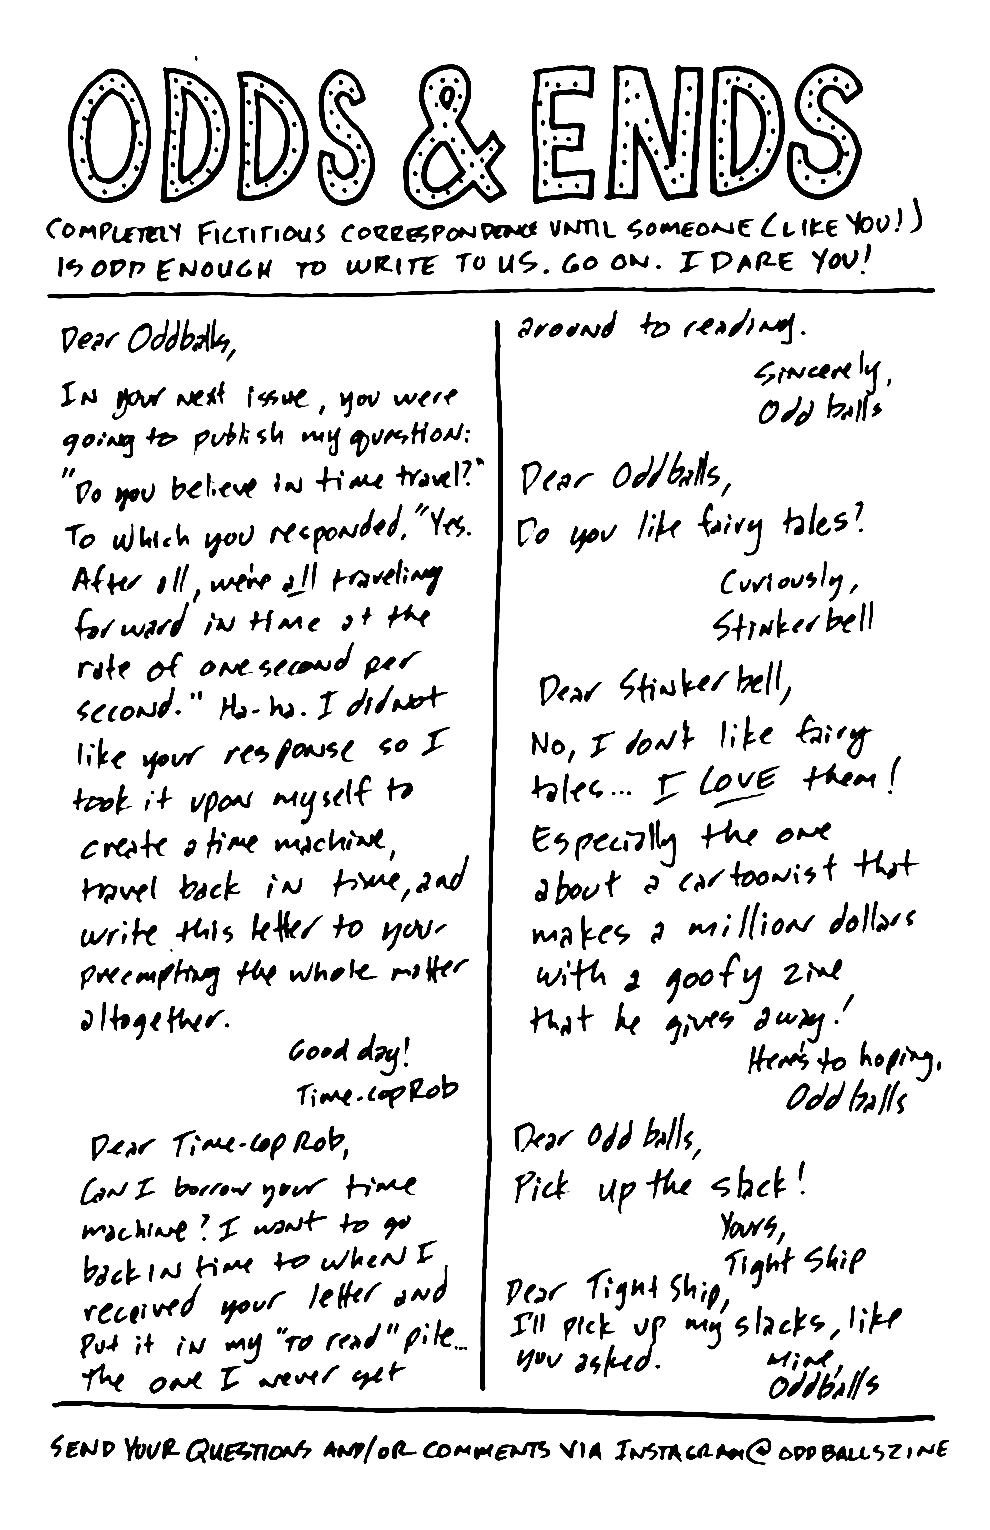 ODDS & ENDS
(COMPLETELY FICTITIOUS CORRESPONDENCE UNTIL SOMEONE (LIKE YOU!)
IS ODD ENOUGH TO WRITE TO US. GO ON. I DARE YOU!
Dear Oddballs,
In your next issue, you were
going to publish my question:
"Do you believe in time travel?"
To which you responded, "Yes.
After all, we're all traveling
forward in time at the
rate of one second per
second." Ha-ha. I did not
like your response so I
took it upon myself to
create a time machine,
travel back in time, and
write this letter to you-
preempting the whole matter
altogether.
Good day!
Time-cop Rob
Dear Time-cop Rob,
Can I borrow your time
machine? I want to go
back in time to when I
received your letter and
put it in my "to read" pile...
the one I never get
around to reading.
Sincerely,
Oddballs
Dear Oddballs,
Do you like fairy tales?
Curiously,
Stinkerbell
Dear Stinkerbell,
No, I don't like fairy
tales... I LOVE them!
Especially the one
about a cartoonist that
makes a million dollars
with a goofy zine
that he gives away!
Here's to hoping,
Oddballs
Dear Oddballs,
Pick up the slack!
Yours,
Tight Ship
Dear Tight Ship,
I'll pick up my slacks, like
you asked.
Mine,
Oddballs
SEND YOUR QUESTIONS AND/OR COMMENTS VIA INSTAGRAM @ODDBALLSZINE